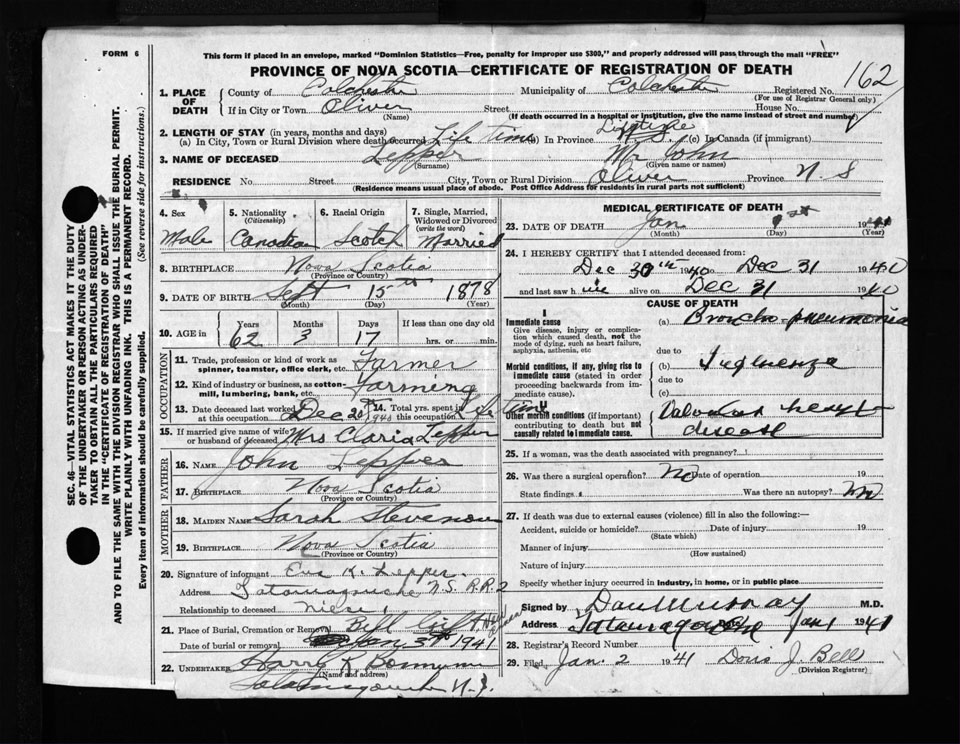 FORM 6
This form if placed in an envelope, marked "Dominion Statistics—Free, penalty for improper use $300," and properly addressed will pass through the mail "FREE"
PROVINCE OF NOVA SCOTIA—CERTIFICATE OF REGISTRATION OF DEATH
162
1. PLACE OF DEATH
County of Colchester Municipality of Colchester Registered No.
(For use of Registrar General only)
If in City or Town Oliver Street House No.
(Name) (If death occurred in a hospital or institution, give the name instead of street and number)
2. LENGTH OF STAY (in years, months and days)
(a) In City, Town or Rural Division where death occurred Life time (b) In Province Lifetime (c) In Canada (if immigrant)
3. NAME OF DECEASED Lepper Mr John
(Surname) (Given name or names)
RESIDENCE No. Street City, Town or Rural Division Oliver Province N. S
(Residence means usual place of abode. Post Office Address for residents in rural parts not sufficient)
4. Sex Male
5. Nationality (Citizenship) Canadian
6. Racial Origin Scotch
7. Single, Married, Widowed or Divorced (write the word) Married
8. BIRTHPLACE Nova Scotia
(Province or Country)
9. DATE OF BIRTH Sept 15th 1878
(Month) (Day) (Year)
10. AGE in Years Months Days If less than one day old
62 3 17 hrs. or min.
OCCUPATION
11. Trade, profession or kind of work as spinner, teamster, office clerk, etc. Farmer
12. Kind of industry or business, as cotton-mill, lumbering, bank, etc. Farming
13. Date deceased last worked at this occupation Dec 20th 1940
14. Total yrs. spent in this occupation Life Time
15. If married give name of wife or husband of deceased Mrs Claria Lepper
FATHER
16. NAME John Lepper
17. BIRTHPLACE Nova Scotia
(Province or Country)
MOTHER
18. MAIDEN NAME Sarah Stevenson
19. BIRTHPLACE Nova Scotia
(Province or Country)
20. Signature of informant Eva K. Lepper
Address Tatamagouche N.S. R.R.2
Relationship to deceased niece
21. Place of Burial, Cremation or Removal
Date of burial or removal Jan 3rd 1941
22. UNDERTAKER Harry
(Name and address)
Tatamagouche N.S.
MEDICAL CERTIFICATE OF DEATH
23. DATE OF DEATH Jan 1st 1941
(Month) (Day) (Year)
24. I HEREBY CERTIFY that I attended deceased from:
Dec 30th 1940 to Dec 31 1940
and last saw him alive on Dec 31 1940
CAUSE OF DEATH
I
Immediate cause
Give disease, injury or complication which caused death, not the mode of dying, such as heart failure, asphyxia, asthenia, etc
(a) Broncho-pneumonia
due to
Morbid conditions, if any, giving rise to immediate cause (stated in order proceeding backwards from immediate cause).
(b) Influenza
due to
(c)
II
Other morbid conditions (if important) contributing to death but not causally related to immediate cause.
Valvular heart disease
25. If a woman, was the death associated with pregnancy?
26. Was there a surgical operation? No Date of operation 19
State findings Was there an autopsy? No
27. If death was due to external causes (violence) fill in also the following:—
Accident, suicide or homicide? Date of injury 19
(State which)
Manner of injury
(How sustained)
Nature of injury
Specify whether injury occurred in industry, in home, or in public place
Signed by Dan Murray M.D.
Address Tatamagouche Jan 1 1941
28. Registrar's Record No.
29. Filed Jan. 2 1941 Doris J. Bell
(Division Registrar)
SEC. 46—VITAL STATISTICS ACT MAKES IT THE DUTY OF THE UNDERTAKER OR PERSON ACTING AS UNDERTAKER TO OBTAIN ALL THE PARTICULARS REQUIRED IN THE "CERTIFICATE OF REGISTRATION OF DEATH" AND TO FILE THE SAME WITH THE DIVISION REGISTRAR WHO SHALL ISSUE THE BURIAL PERMIT.
WRITE PLAINLY WITH UNFADING INK. THIS IS A PERMANENT RECORD.
Every item of information should be carefully supplied. (See reverse side for instructions.)